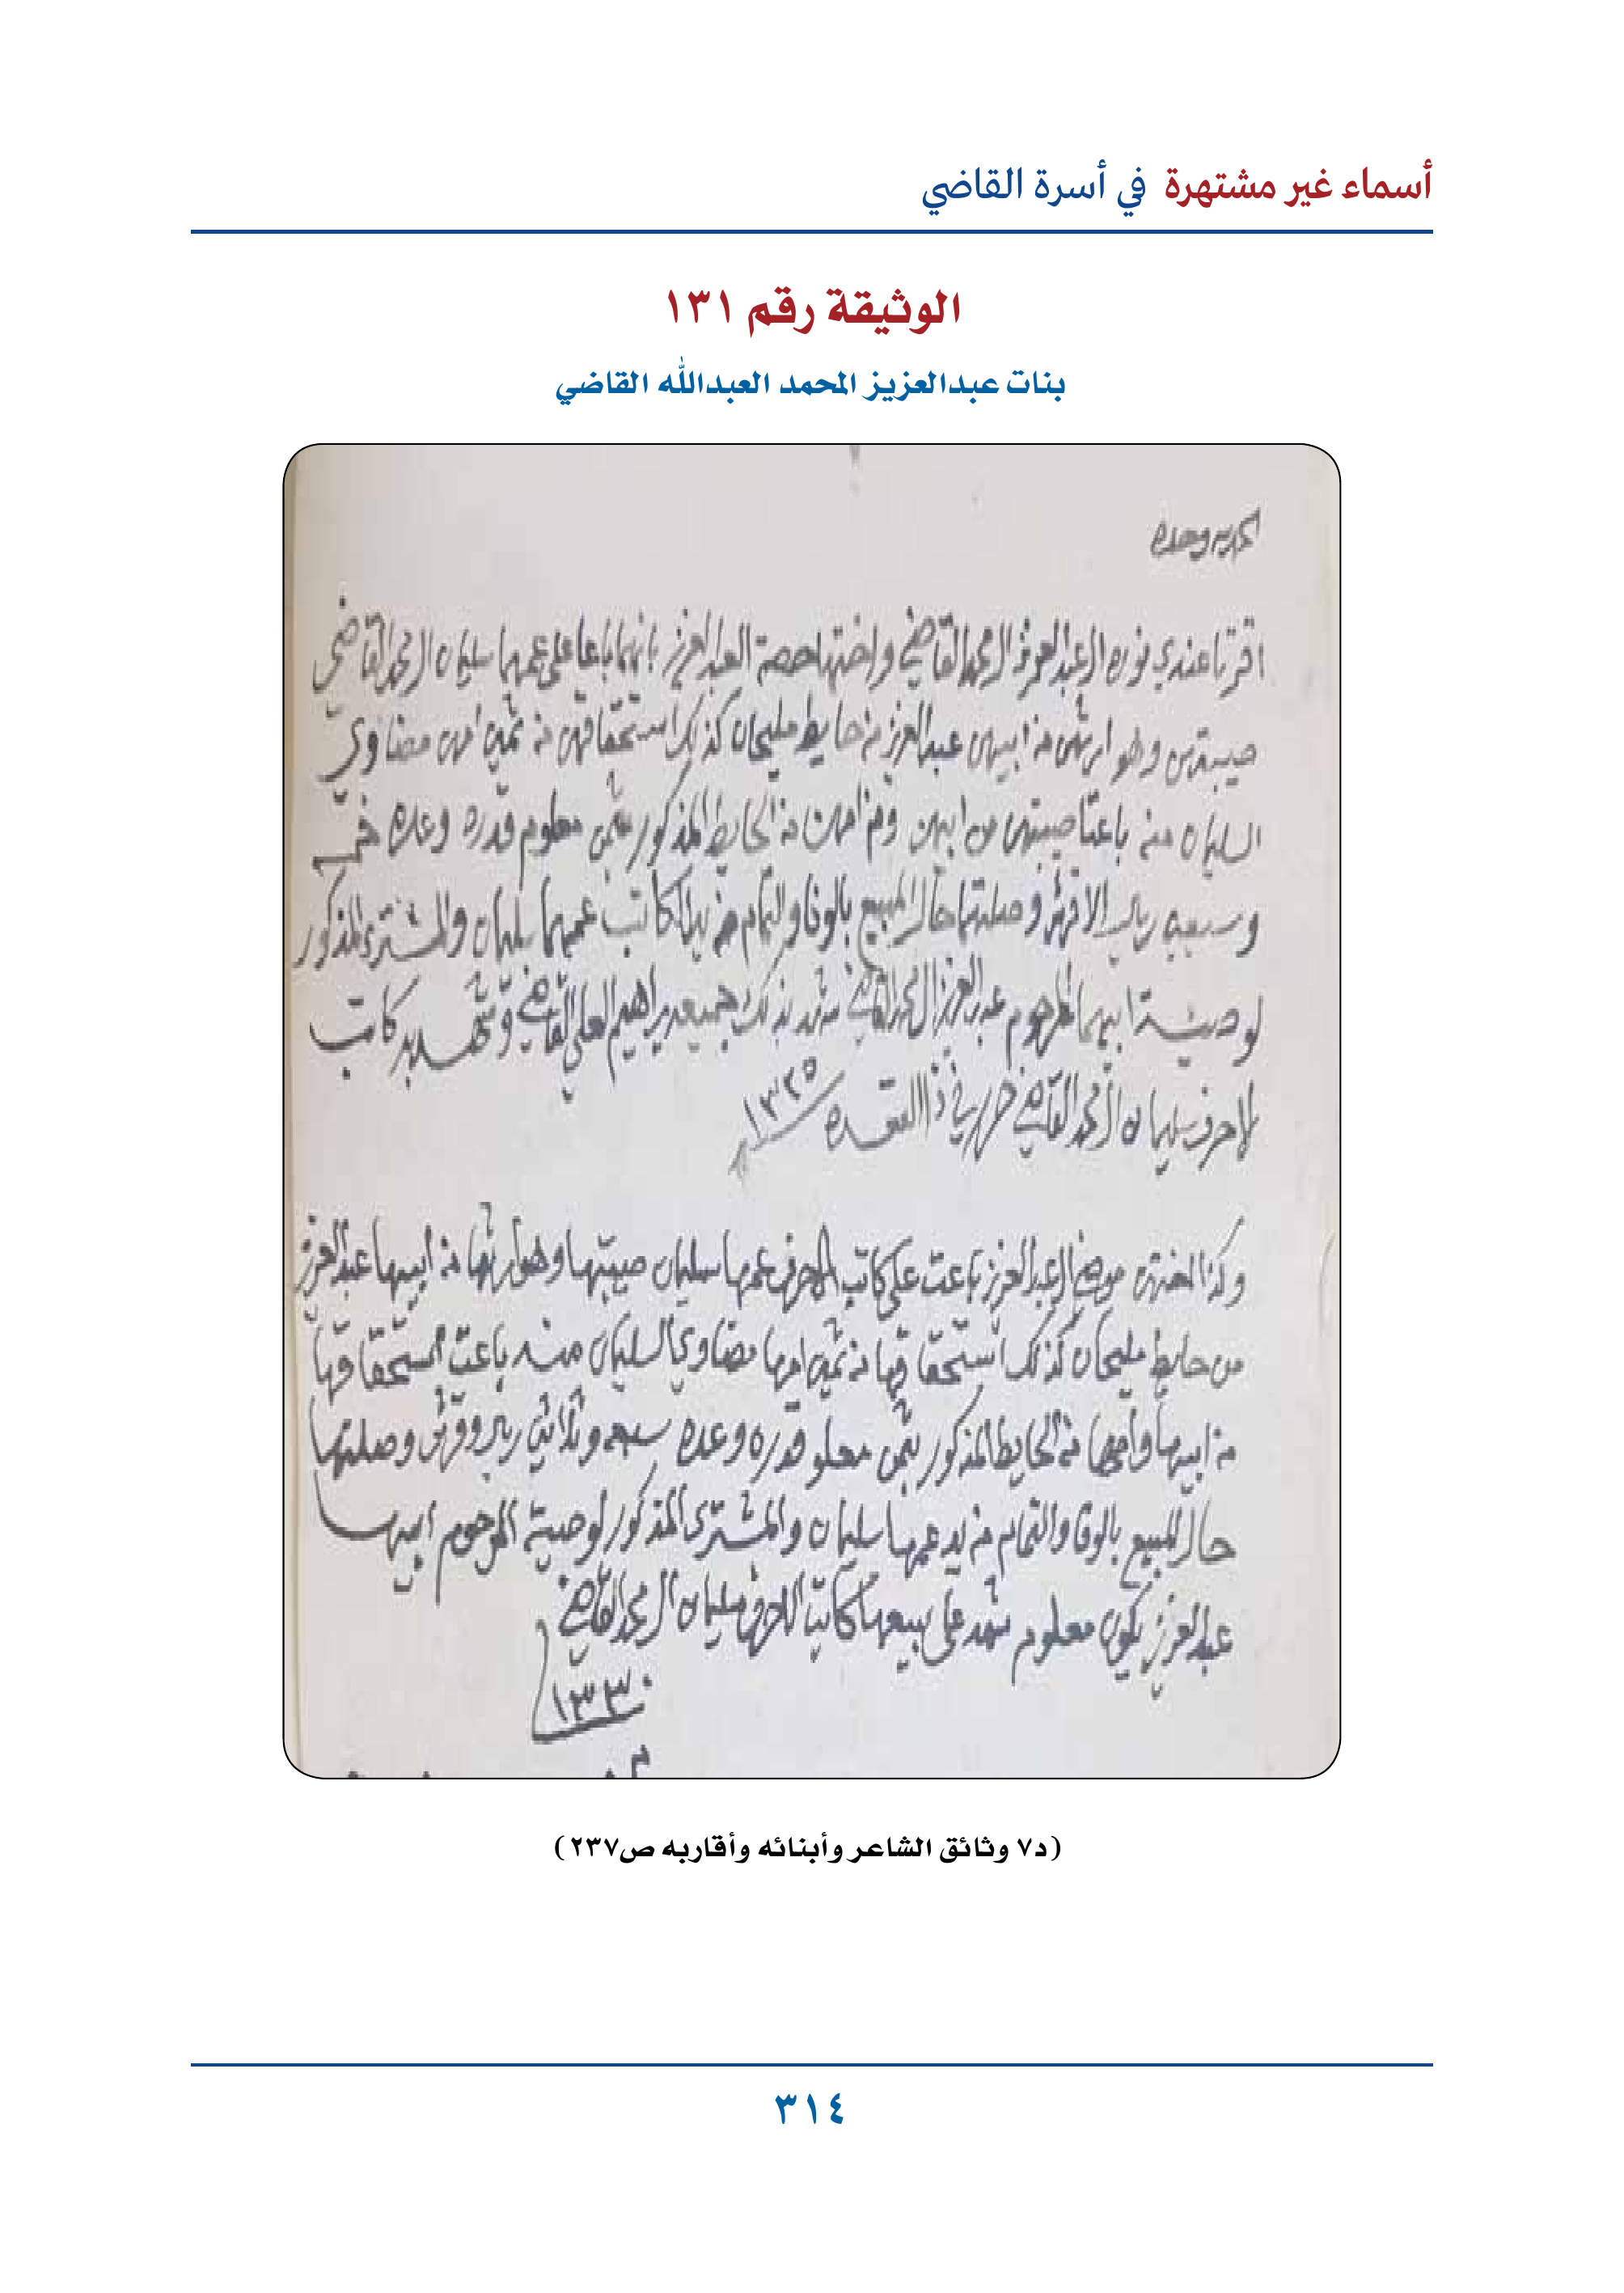 أسماء غير مشتهرة في أسرة القاضي
الوثيقة رقم ١٣١
بنات عبدالعزيز المحمد العبدالله القاضي
الحمد لله وحده
اقرتا عندي نوره العبدالعزيز المحمد القاضي واختها حصة العبدالعزيز بانهما باعا على عمهما سليمان المحمد القاضي
صيبتهن وهو ارثهن من ابيهن عبدالعزيز من حايط مليحان كذلك استحقاقهن من ثمين امهن مضاوي
السليمان منه باعتا صيبتهن من ابيهن ومن امهن من الحايط المذكور بثمن معلوم قدره وعده خمسه
وسبعين ريال الا قرش وصلتهما حال المبيع بالوفا والتمام من يد الكاتب عمهما سليمان والمشترى المذكور
لوصية ابيهما المرحوم عبدالعزيز المحمد القاضي شهد بذلك جميعه ابراهيم العلي القاضي وشهد به كاتب
الاحرف سليمان المحمد القاضي حرر في ذا القعده ١٣٢٥
وكذا اختهن موضي العبدالعزيز باعت على كاتب الاحرف عمها سليمان صيبتها وهو ارثها من ابيها عبدالعزيز
من حايط مليحان كذلك استحقاقها من ثمين امها مضاوي السليمان منه باعت استحقاقها
من ابيها وامها من الحايط المذكور بثمن معلوم قدره وعده سبعه وثلاثين ريال وقرش وصلتها
حال المبيع بالوفا والتمام من يد عمها سليمان والمشترى المذكور لوصية المرحوم ابيها
عبدالعزيز يكون معلوم شهد على بيعها كاتب الاحرف سليمان المحمد القاضي
١٣٣٠
(د٧ وثائق الشاعر وأبنائه وأقاربه ص٢٣٧)
٣١٤